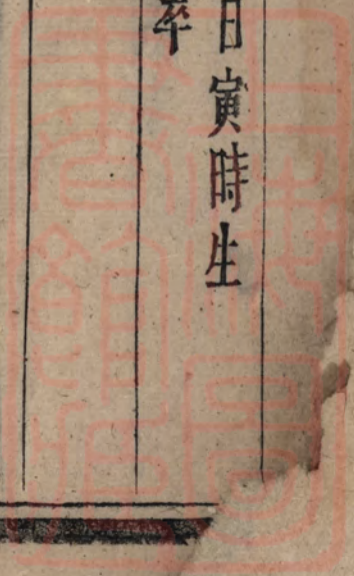 日寅時生
卒